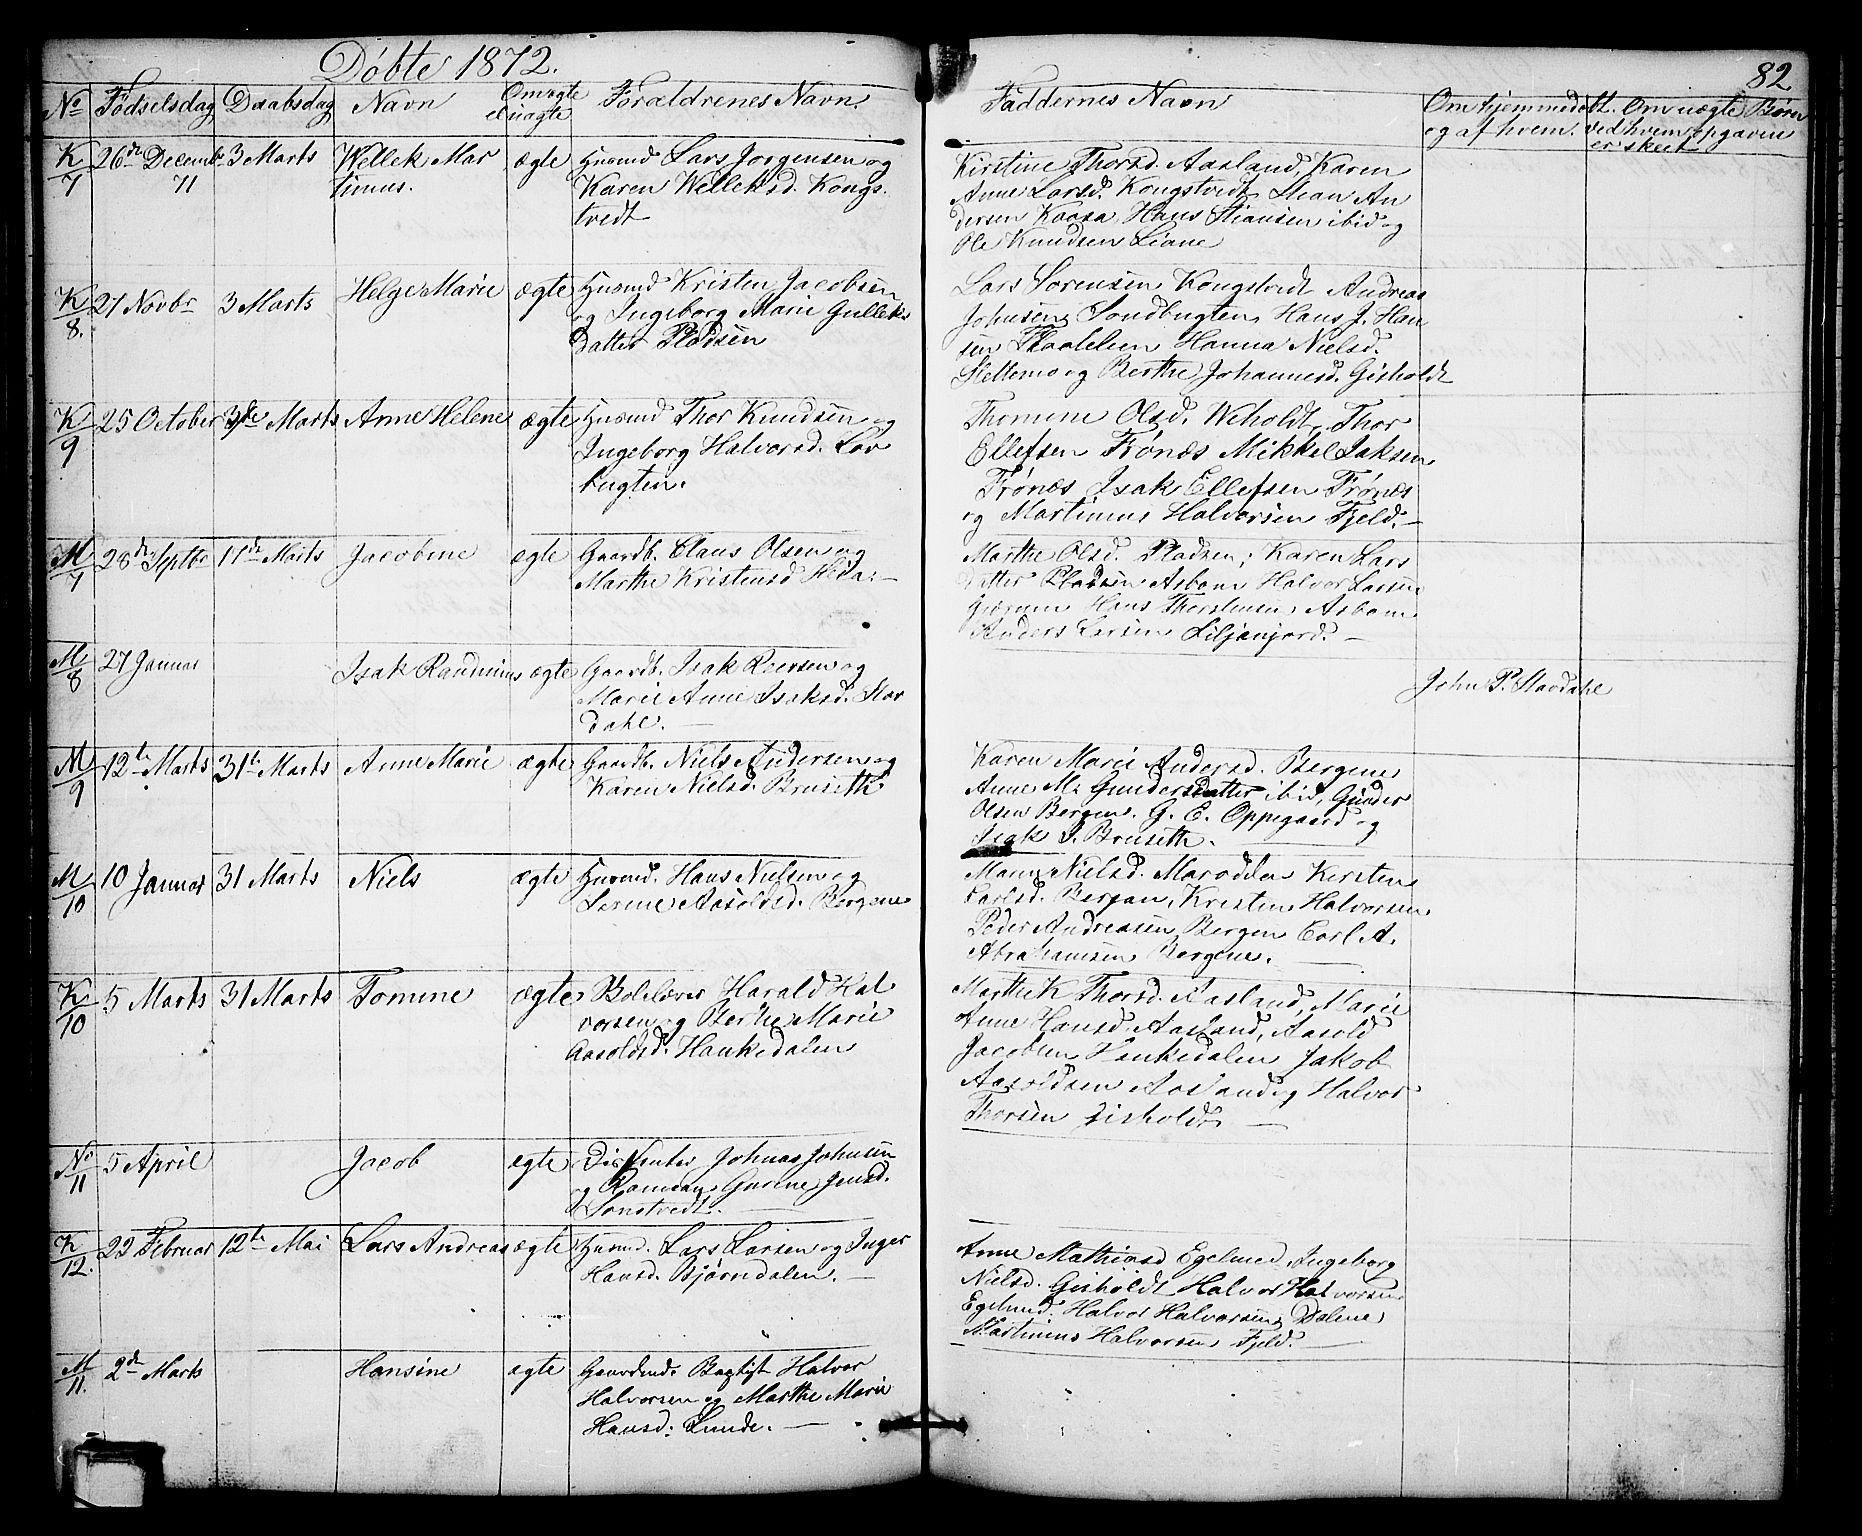 Døbte 1872.
82
No Fødselsdag Daabsdag Navn Om ægte el uægte Forældrenes Navn Faddernes Navn Om hjemmedøbt og af hvem. Om uægte Børn ved hvem opgaven er skeet
K/7 26de Decembr 71 3 Marts Wellek Mar
tinius. ægte Husmd Lars Jørgensen og
Karen Welleksd. Kongs
tvedt
Kirstine Thorsd. Aasland, Karen
Anne Larsd. Kongstvedt, Stian An
dersen Kaasa, Hans Stiansen ibid og
Ole Knudsen Liane
K/8. 27 Novbr 3 Marts Helge Marie ægte Husmd Kristen Jacobsen
og Ingeborg Marie Gulleks
datter Pladsen
Lars Sørensen Kongstvedt Andreas
Johnsen, Sondbugten, Hans J. Han
sen Hanna Nielsd.
Slettemo og Berthe Johannesd. Gisholdt
K/9 25 October 3de Marts Anne Helene ægte Husmd Thor Knudsen og
Ingeborg Halvorsd. Løv
bugten.
Thomine Olsd. Weholdt, Thor
Ellefsen Trønæs Mikkel Isaksen
Trønæs Isak Ellefsen Trønæs
og Martinius Halvorsen Fjeld. —
M/7 28de Septbr 17de Marts Jacobine ægte Gaardb. Claus Olsen og
Marthe Kristensd
Marthe Olsd. Pladsen; Karen Lars
datter Pladsen Halvor Larsen
Hans Thorstensen
Anders Larsen —
M/8 27 Januar Isak Randinius ægte Gaardb. Isak Reersen og
Marie Anne Isaksd. Stav
dahl. —
John P. Stavdahl
M/9 12te Marts 31te Marts Anne Marie ægte Gaardb. Niels Andersen og
Karen Nielsd. Bruseth
Karen Marie Andersd. Bergene
Anne M. Gundersdatter ibid, Gunder
Olsen Bergene. G. E. Oppegaard og
Isak J. Bruseth. —
M/10 10 Januar 31 Marts Niels ægte Husmd. Hans Nielsen og
Serine Aasoldsd. Bergene
Nielsd. Kirsten
Carlsd. Bergan, Kristen Halvorsen
Peder Andreasen Bergen Carl A.
Abrahamsen Bergene. —
K/10 5 Marts 31 Marts Tomine ægte Harald Hal
vorsen og Berthe Marie
Aasoldsd. Haukedalen
Thorsd. Aasland, Marie
Anne Hansd. Aasland, Aasold
Jacobsen Haukedalen Jakob
Aasoldsen Aasland og Halvor
Thorsen Gisholdt —
No/11 5 April Jacob ægte Dissenter Johnas Johnsen
og Gurine Jensd.
Sønstvedt. —
K/12. 22 Februar 12te Mai Lars Andreas ægte Husmd. Lars Larsen og Inger
Hansd. Bjørndalen. —
Anne Mathiasd Egelund, Ingeborg
Nielsd. Gisholdt Halvor Halvorsen
Egelund. Halvor Halvorsen, Dalene
Martinius Halvorsen Fjeld. —
M/11. 2de Marts Hansine ægte Gaardmd. Baptist Halvor
Halvorsen og Marthe Marie
Hansd. Lunde. —